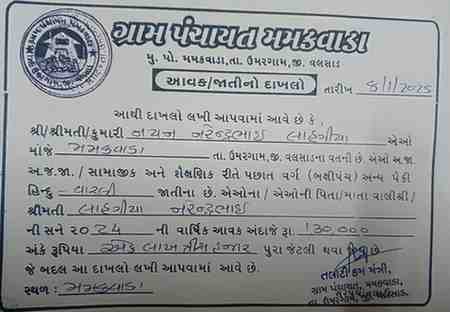 ગ્રામ પંચાયત મમકવાડા
મુ. પો. મમકવાડા, તા. ઉમરગામ, જી. વલસાડ
આવક/જાતીનો દાખલો
તારીખ 8/1/2025
આથી દાખલો લખી આપવામાં આવે છે કે,
શ્રી/શ્રીમતી/કુમારી નયન નરેન્દ્રભાઇ લાહંગીયા એઓ
મોજે મમકવાડા તા. ઉમરગામ, જી. વલસાડના વતની છે. એઓ અ.જા.
અ.જ.જા. / સામાજીક અને શૈક્ષણિક રીતે પછાત વર્ગ (બક્ષીપંચ) અન્ય પૈકી
હિન્દુ - વારલી જાતીના છે. એઓના / એઓની પિતા/માતા વાલીશ્રી/
શ્રીમતી લાહંગીયા નરેન્દ્રભાઇ
ની સને ૨૦૨૪ ની વાર્ષિક આવક અંદાજે રૂા. ૧૩૦,૦૦૦
અંકે રૂપિયા એક લાખ ત્રીસ હજાર પુરા જેટલી થવા જાય છે
જે બદલ આ દાખલો લખી આપવામાં આવે છે.
સ્થળ : મમકવાડા
તલાટી કમ મંત્રી,
ગ્રામ પંચાયત, મમકવાડા,
તા. ઉમરગામ, જી. વલસાડ.